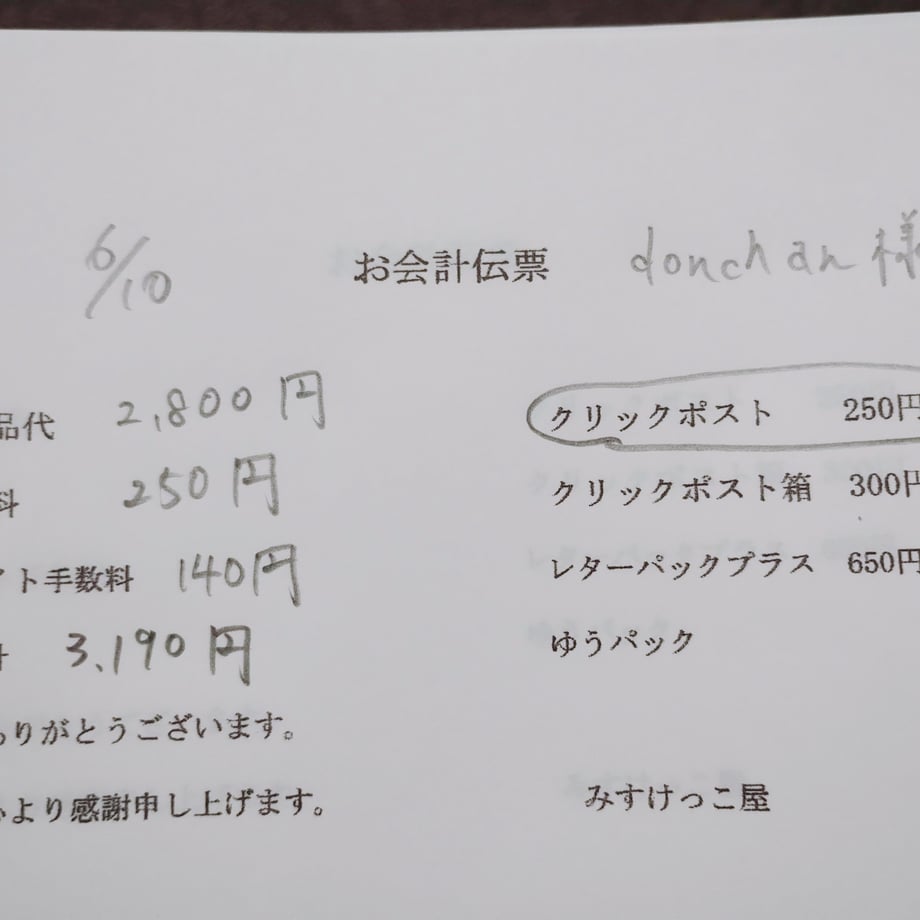 6/10 お会計伝票 donchan様
品代 2,800円
料 250円
イト手数料 140円
計 3,190円
ありがとうございます。
心より感謝申し上げます。
クリックポスト 250円
クリックポスト箱 300円
レターパックプラス 650円
ゆうパック
みすけっこ屋